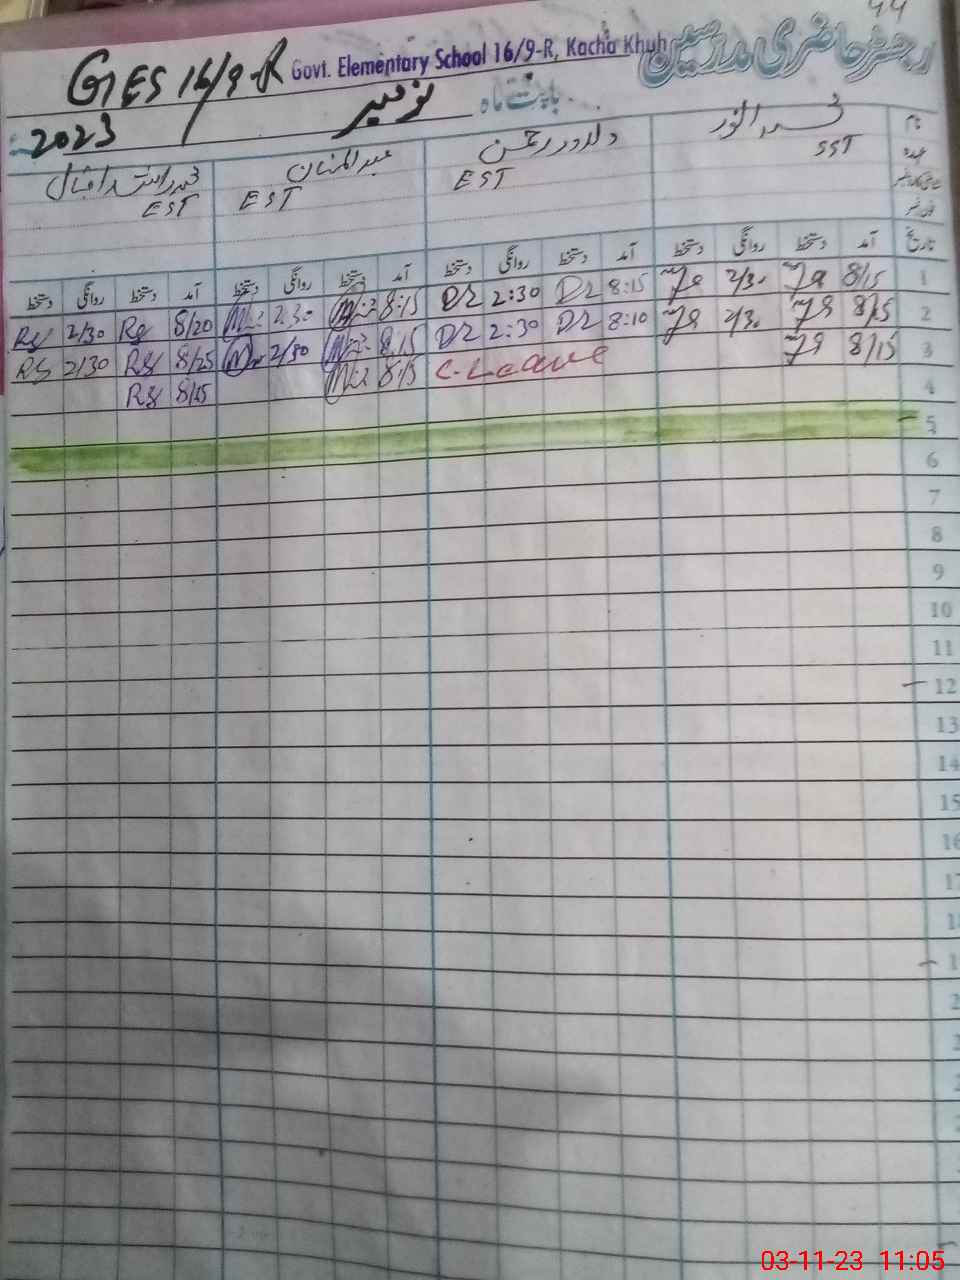 44
GES 16/9-R Govt. Elementary School 16/9-R, Kacha Khuh رجسٹر حاضری مدرسین
2023 نومبر بابت ماہ
نام محمد انور دلاور رحمن عبدالمنان محمد راشد اقبال
عہدہ SST EST EST EST
تاریخ آمد دستخط روانگی دستخط آمد دستخط روانگی دستخط آمد دستخط روانگی دستخط آمد دستخط روانگی دستخط
1 8/15 2/30 8:15 DR 2:30 DR 8:15 2:30 8/20 RS 2/30 RS
2 8/15 2/30 8:10 DR 2:30 DR 8:15 2/30 8/25 RS 2/30 RS
3 8/15 C-Leave 8:15 8/25 RS
4
5
6
7
8
9
10
11
12
13
14
15
16
03-11-23 11:05